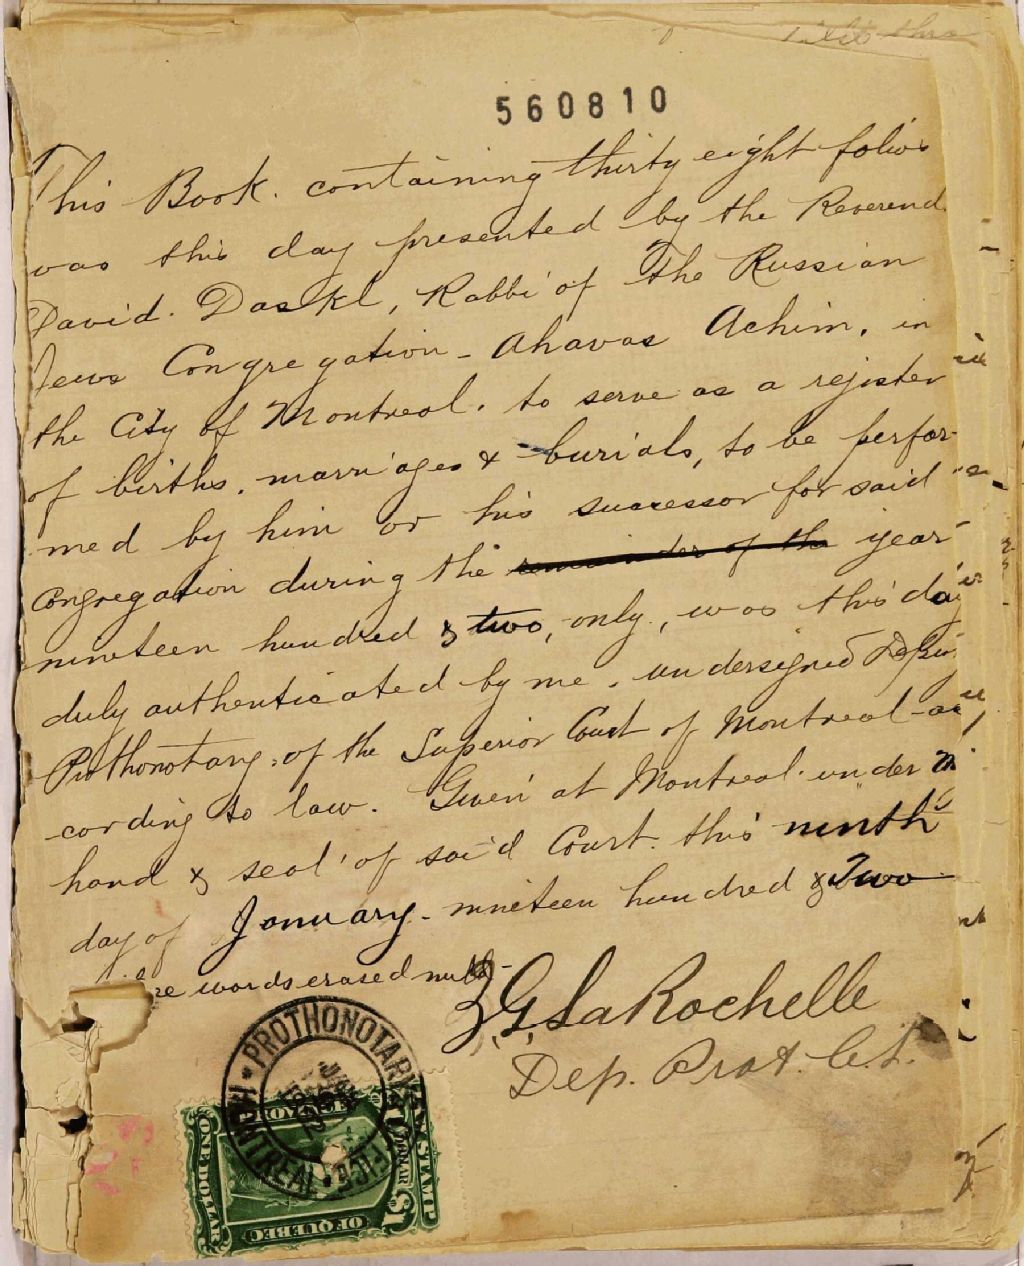 560810
This Book. containing thirty eight folios
was this day presented by the Reverend
David. Daskl, Rabbi of the Russian
Jews Congregation - Ahavas Achim, in
the City of Montreal. to serve as a rejister
of births, marriages & burials, to be perfor-
med by him or his successor for said
congregation during the remainder of the year
nineteen hundred & two, only, was this day
duly authenticated by me, undersigned Deputy
Prothonotary, of the Superior Court of Montreal - ac
cording to law. Given at Montreal under my
hand & seal of said Court. this ninth
day of January - nineteen hundred & Two
words erased null -
G. LaRochelle
Dep. Prot. C.S.
PROTHONOTARY'S OFFICE
MONTREAL
LAW STAMP
ONE DOLLAR
OF QUEBEC
$1